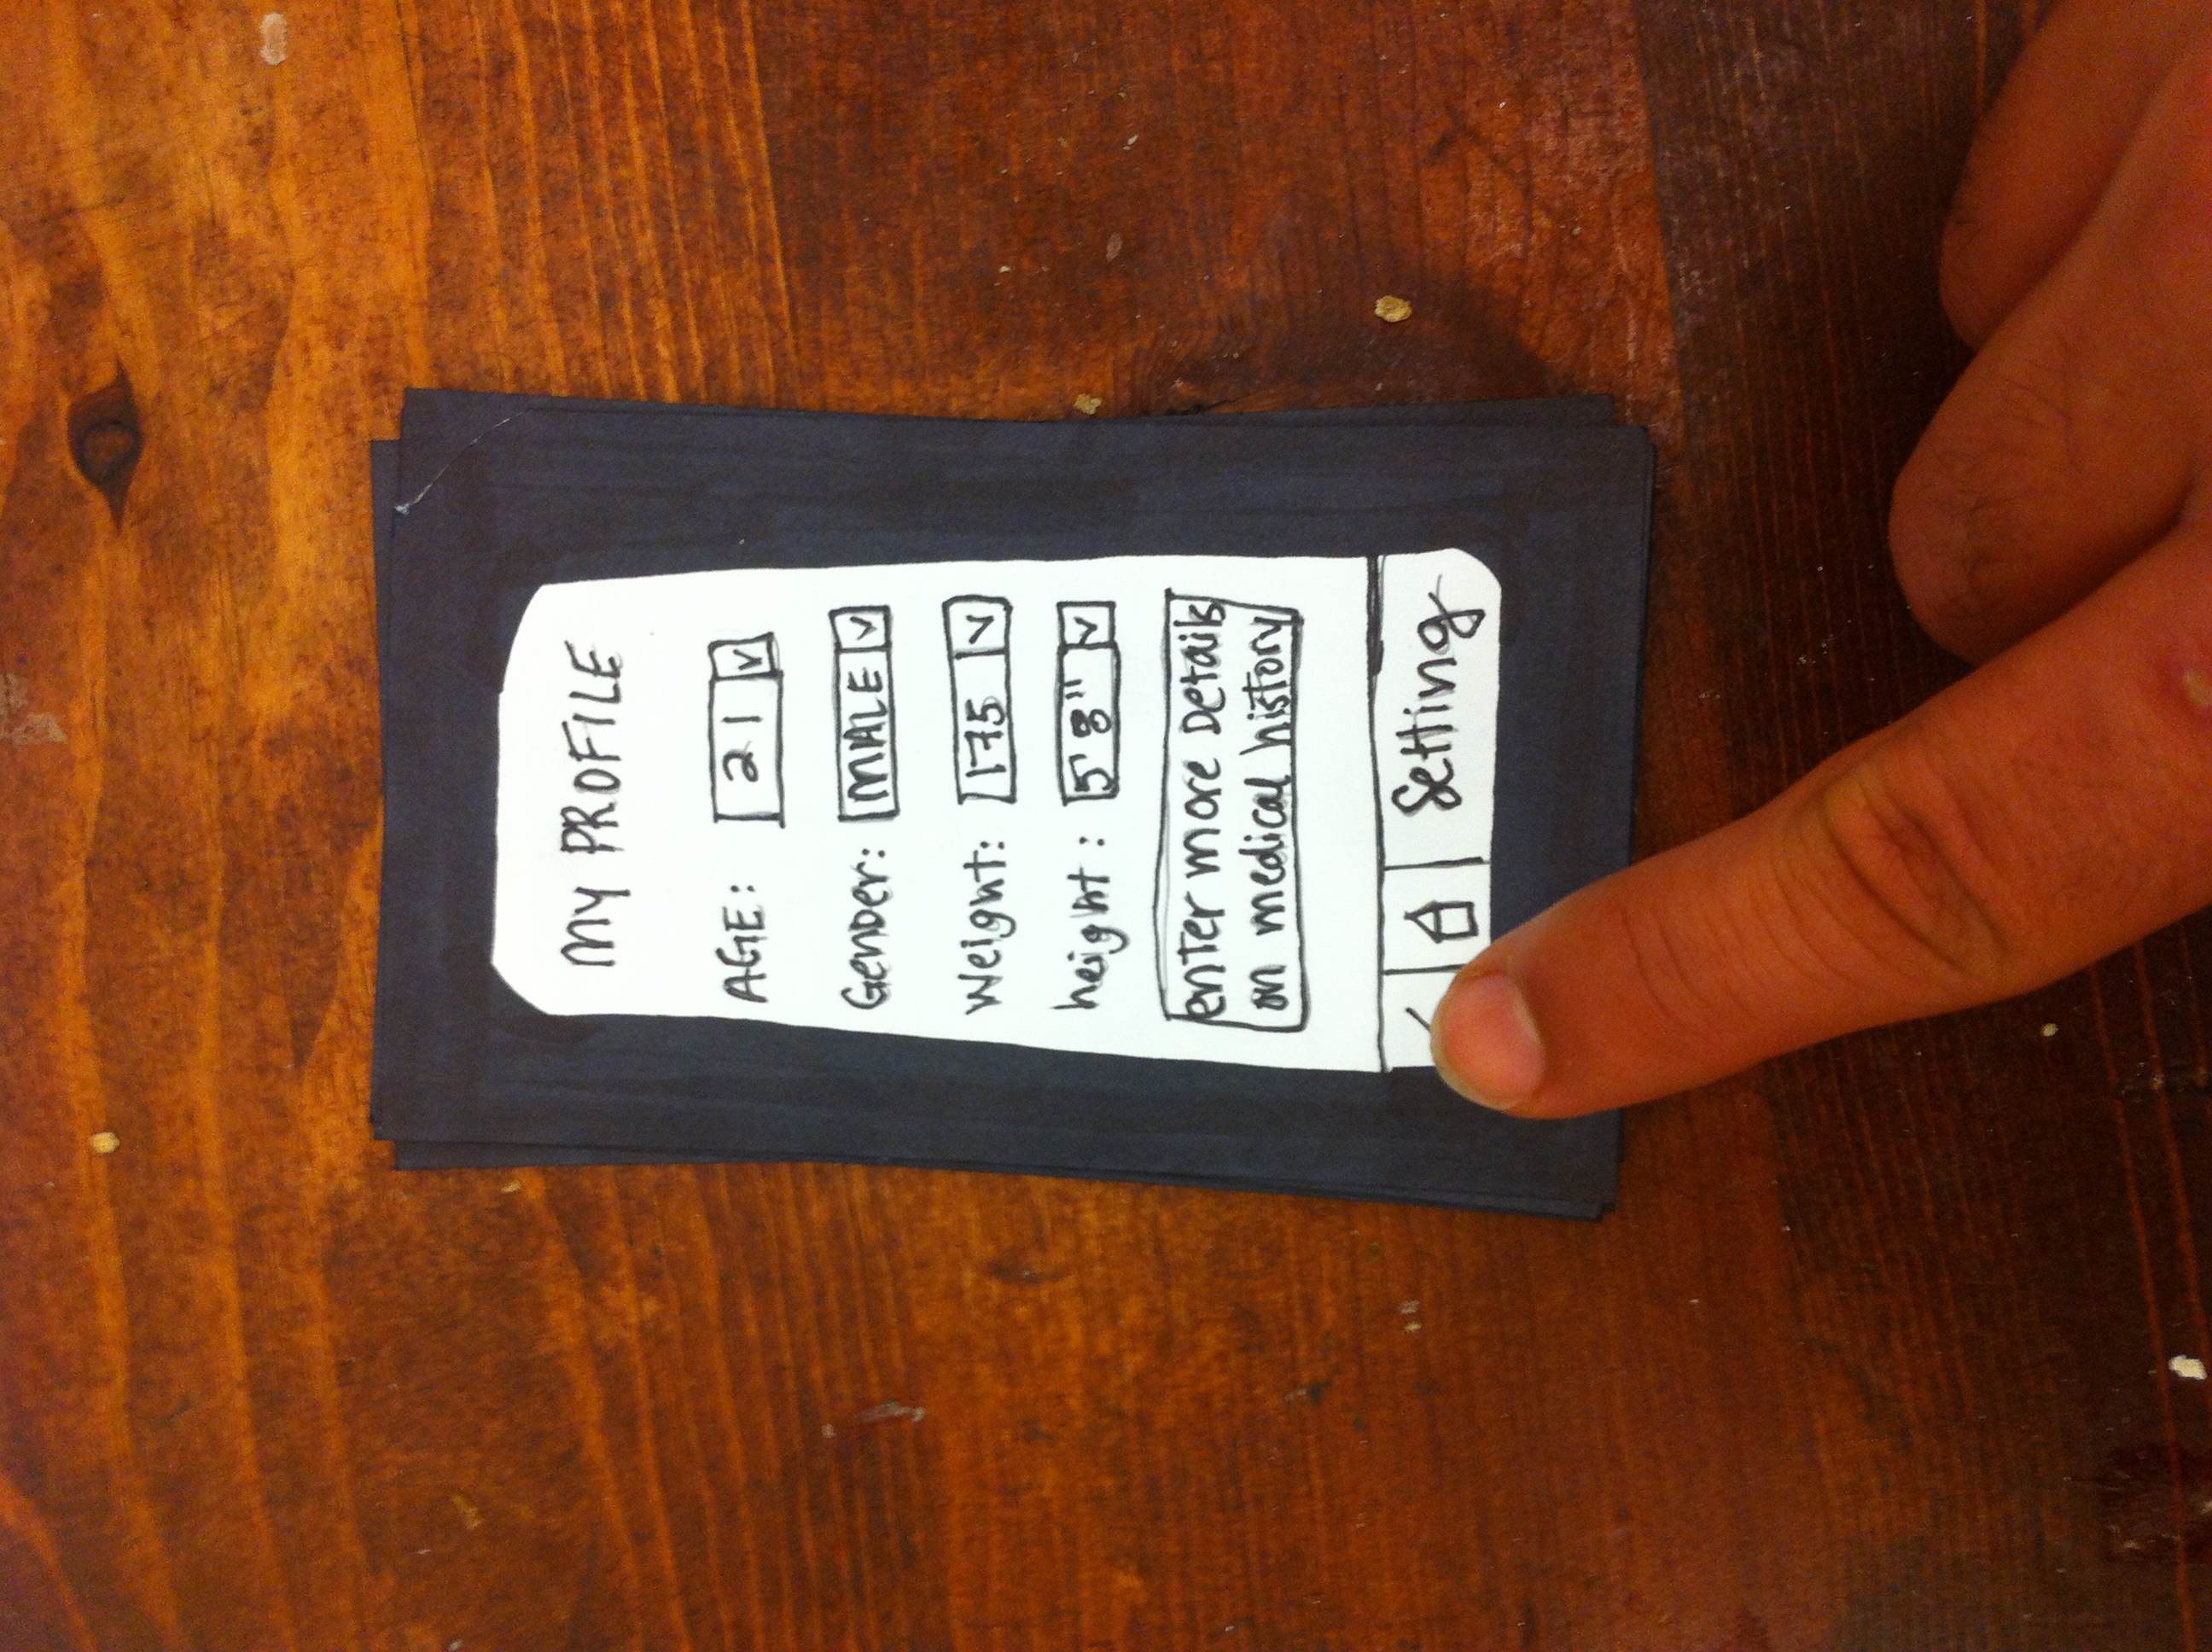 MY PROFILE
AGE: 21
Gender: MALE
Weight: 175
height: 5'8"
enter more Details
on medical history
Setting